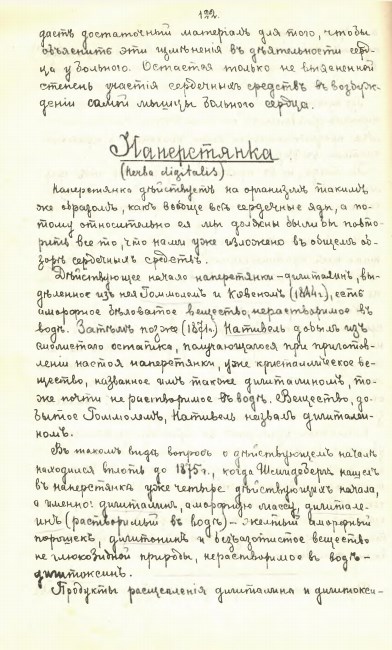 122.
дастъ достаточный матеріалъ для того, чтобы
объяснить эти измѣненія въ дѣятельности серд-
ца у больного. Остается только не выясненной
степень участія сердечныхъ средствъ въ возбуж-
деніи самой мышцы больного сердца.
Наперстянка
(herba digitalis).
Наперстянка дѣйствуетъ на организмъ такимъ
же образомъ, какъ вообще всѣ сердечные яды, а по-
тому относительно ея мы должны были бы повто-
рить все то, что нами уже изложено въ общемъ об-
зорѣ сердечныхъ средствъ.
Дѣйствующее начало наперстянки – дигиталинъ, вы-
дѣленное изъ нея Гоммолемъ и Кевеномъ (1844г.), есть
аморфное бѣловатое вещество, нерастворимое въ
водѣ. Затѣмъ позже (1871г.) Нативель добылъ изъ
смолистаго остатка, получающагося при приготов-
леніи настоя наперстянки, уже кристаллическое ве-
щество, названное имъ также дигиталиномъ, то-
же почти не растворимое въ водѣ. Вещество, до-
бытое Гоммолемъ, Нативель назвалъ дигиталеи-
номъ.
Въ такомъ видѣ вопросъ о дѣйствующемъ началѣ
находился вплоть до 1875г., когда Шмидебергъ нашелъ
въ наперстянкѣ уже четыре дѣйствующихъ начала,
а именно: дигиталинъ, аморфную массу, дигитале-
инъ (растворимый въ водѣ) – желтый аморфный
порошекъ, дигитонинъ и безъазотистое вещество
не глюкозидной природы, нерастворимое въ водѣ –
дигитоксинъ.
Продукты расщепленія дигиталина и дигитокси-